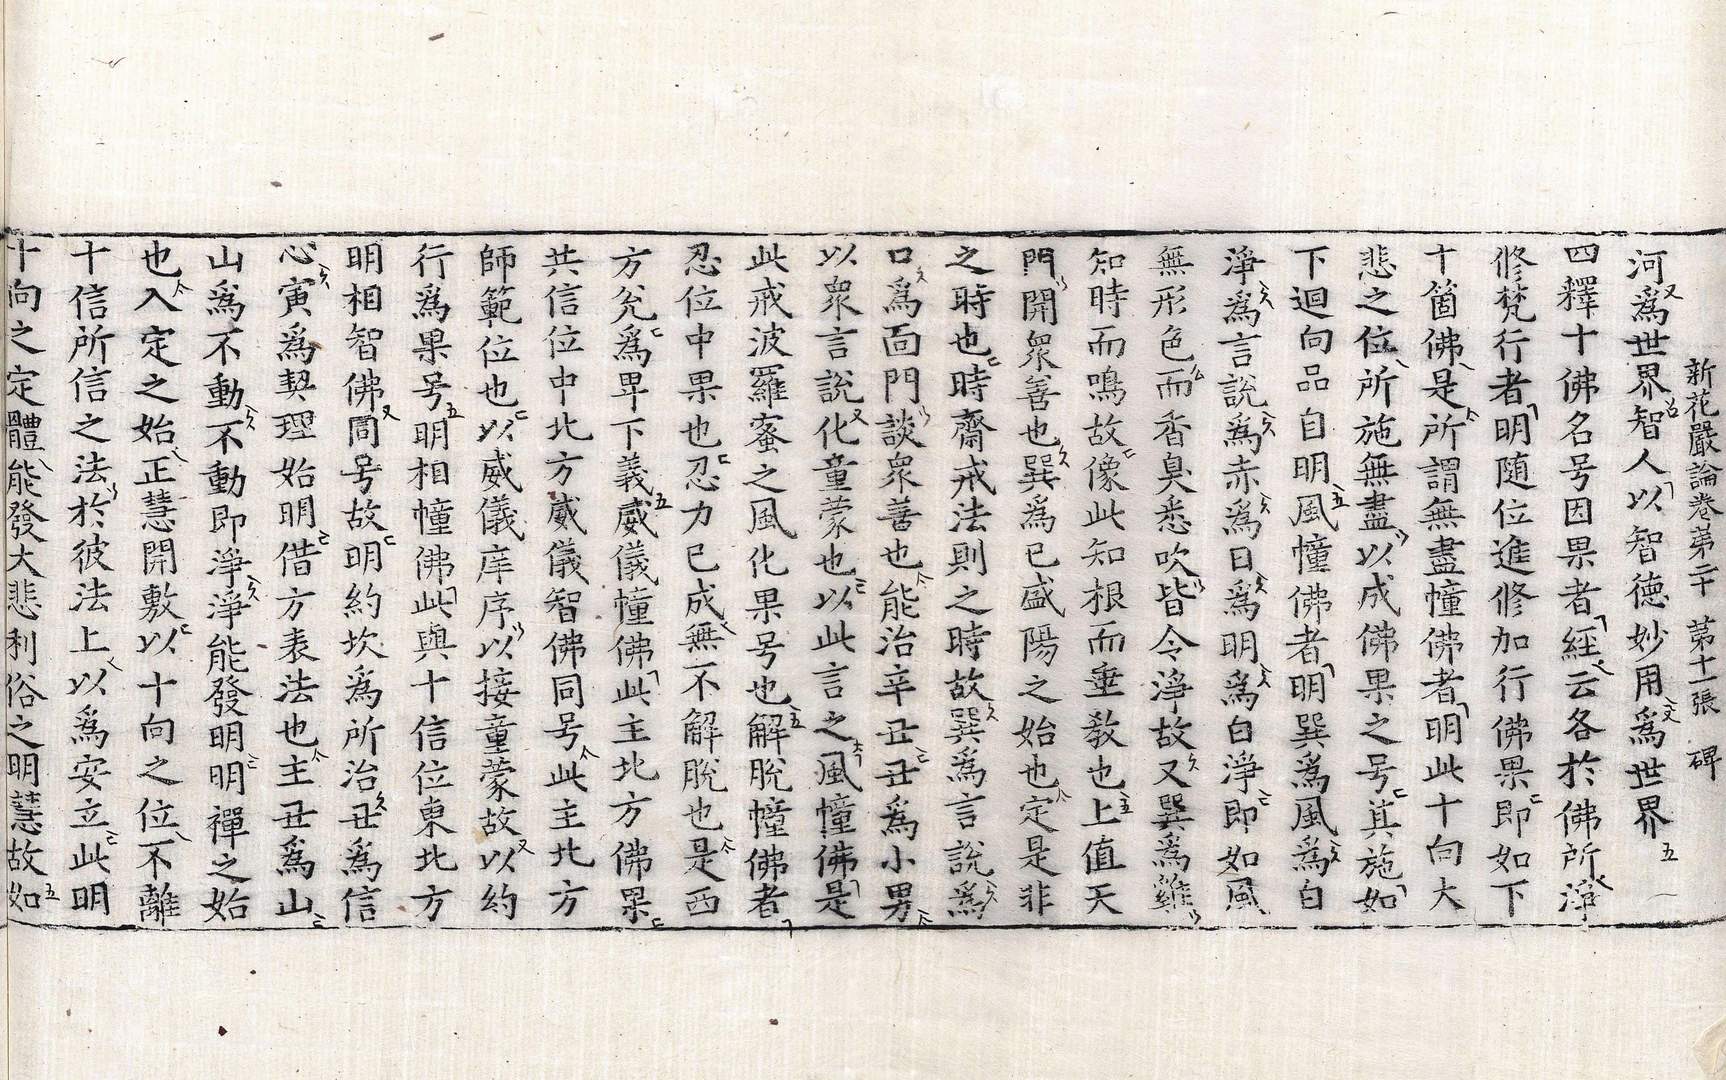 新花嚴論卷第二十　第十一張　碑
河爲世界智人以智德妙用爲世界
四釋十佛名号因果者經云各於佛所淨
修梵行者明随位進修加行佛果即如下
十箇佛是所謂無盡幢佛者明此十向大
悲之位所施無盡以成佛果之号其施如
下迴向品自明風幢佛者明巽爲風爲白
淨爲言說爲赤爲日爲明爲白淨即如風
無形色而香臭悉吹皆令淨故又巽爲雞
知時而鳴故像此知根而垂敎也上值天
門開衆善也巽爲巳盛陽之始也定是非
之時也時齋戒法則之時故巽爲言說爲
口爲面門談衆善也能治辛丑丑爲小男
以衆言說化童蒙也以此言之風幢佛是
此戒波羅蜜之風化果号也解脫幢佛者
忍位中果也忍力已成無不解脫也是西
方兊爲卑下義威儀幢佛此主北方佛果
共信位中北方威儀智佛同号此主北方
師範位也以威儀庠序以接童蒙故以約
行爲果号明相幢佛此與十信位東北方
明相智佛同号故明約坎爲所治丑爲信
心寅爲契理始明借方表法也主丑爲山
山爲不動不動即淨淨能發明明禪之始
也入定之始正慧開敷以十向之位不離
十信所信之法於彼法上以爲安立此明
十向之定體能發大悲利俗之明慧故如